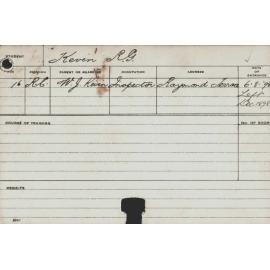 STUDENT
Kevin R.G.
AGE RELIGION PARENT OR GUARDIAN OCCUPATION ADDRESS DATE OF ENTRANCE
16 R.C. W. J. Kevin Inspector Raymond Terrace 6-8-96
Left
Dec. 1898
COURSE OF TRAINING
RESULTS